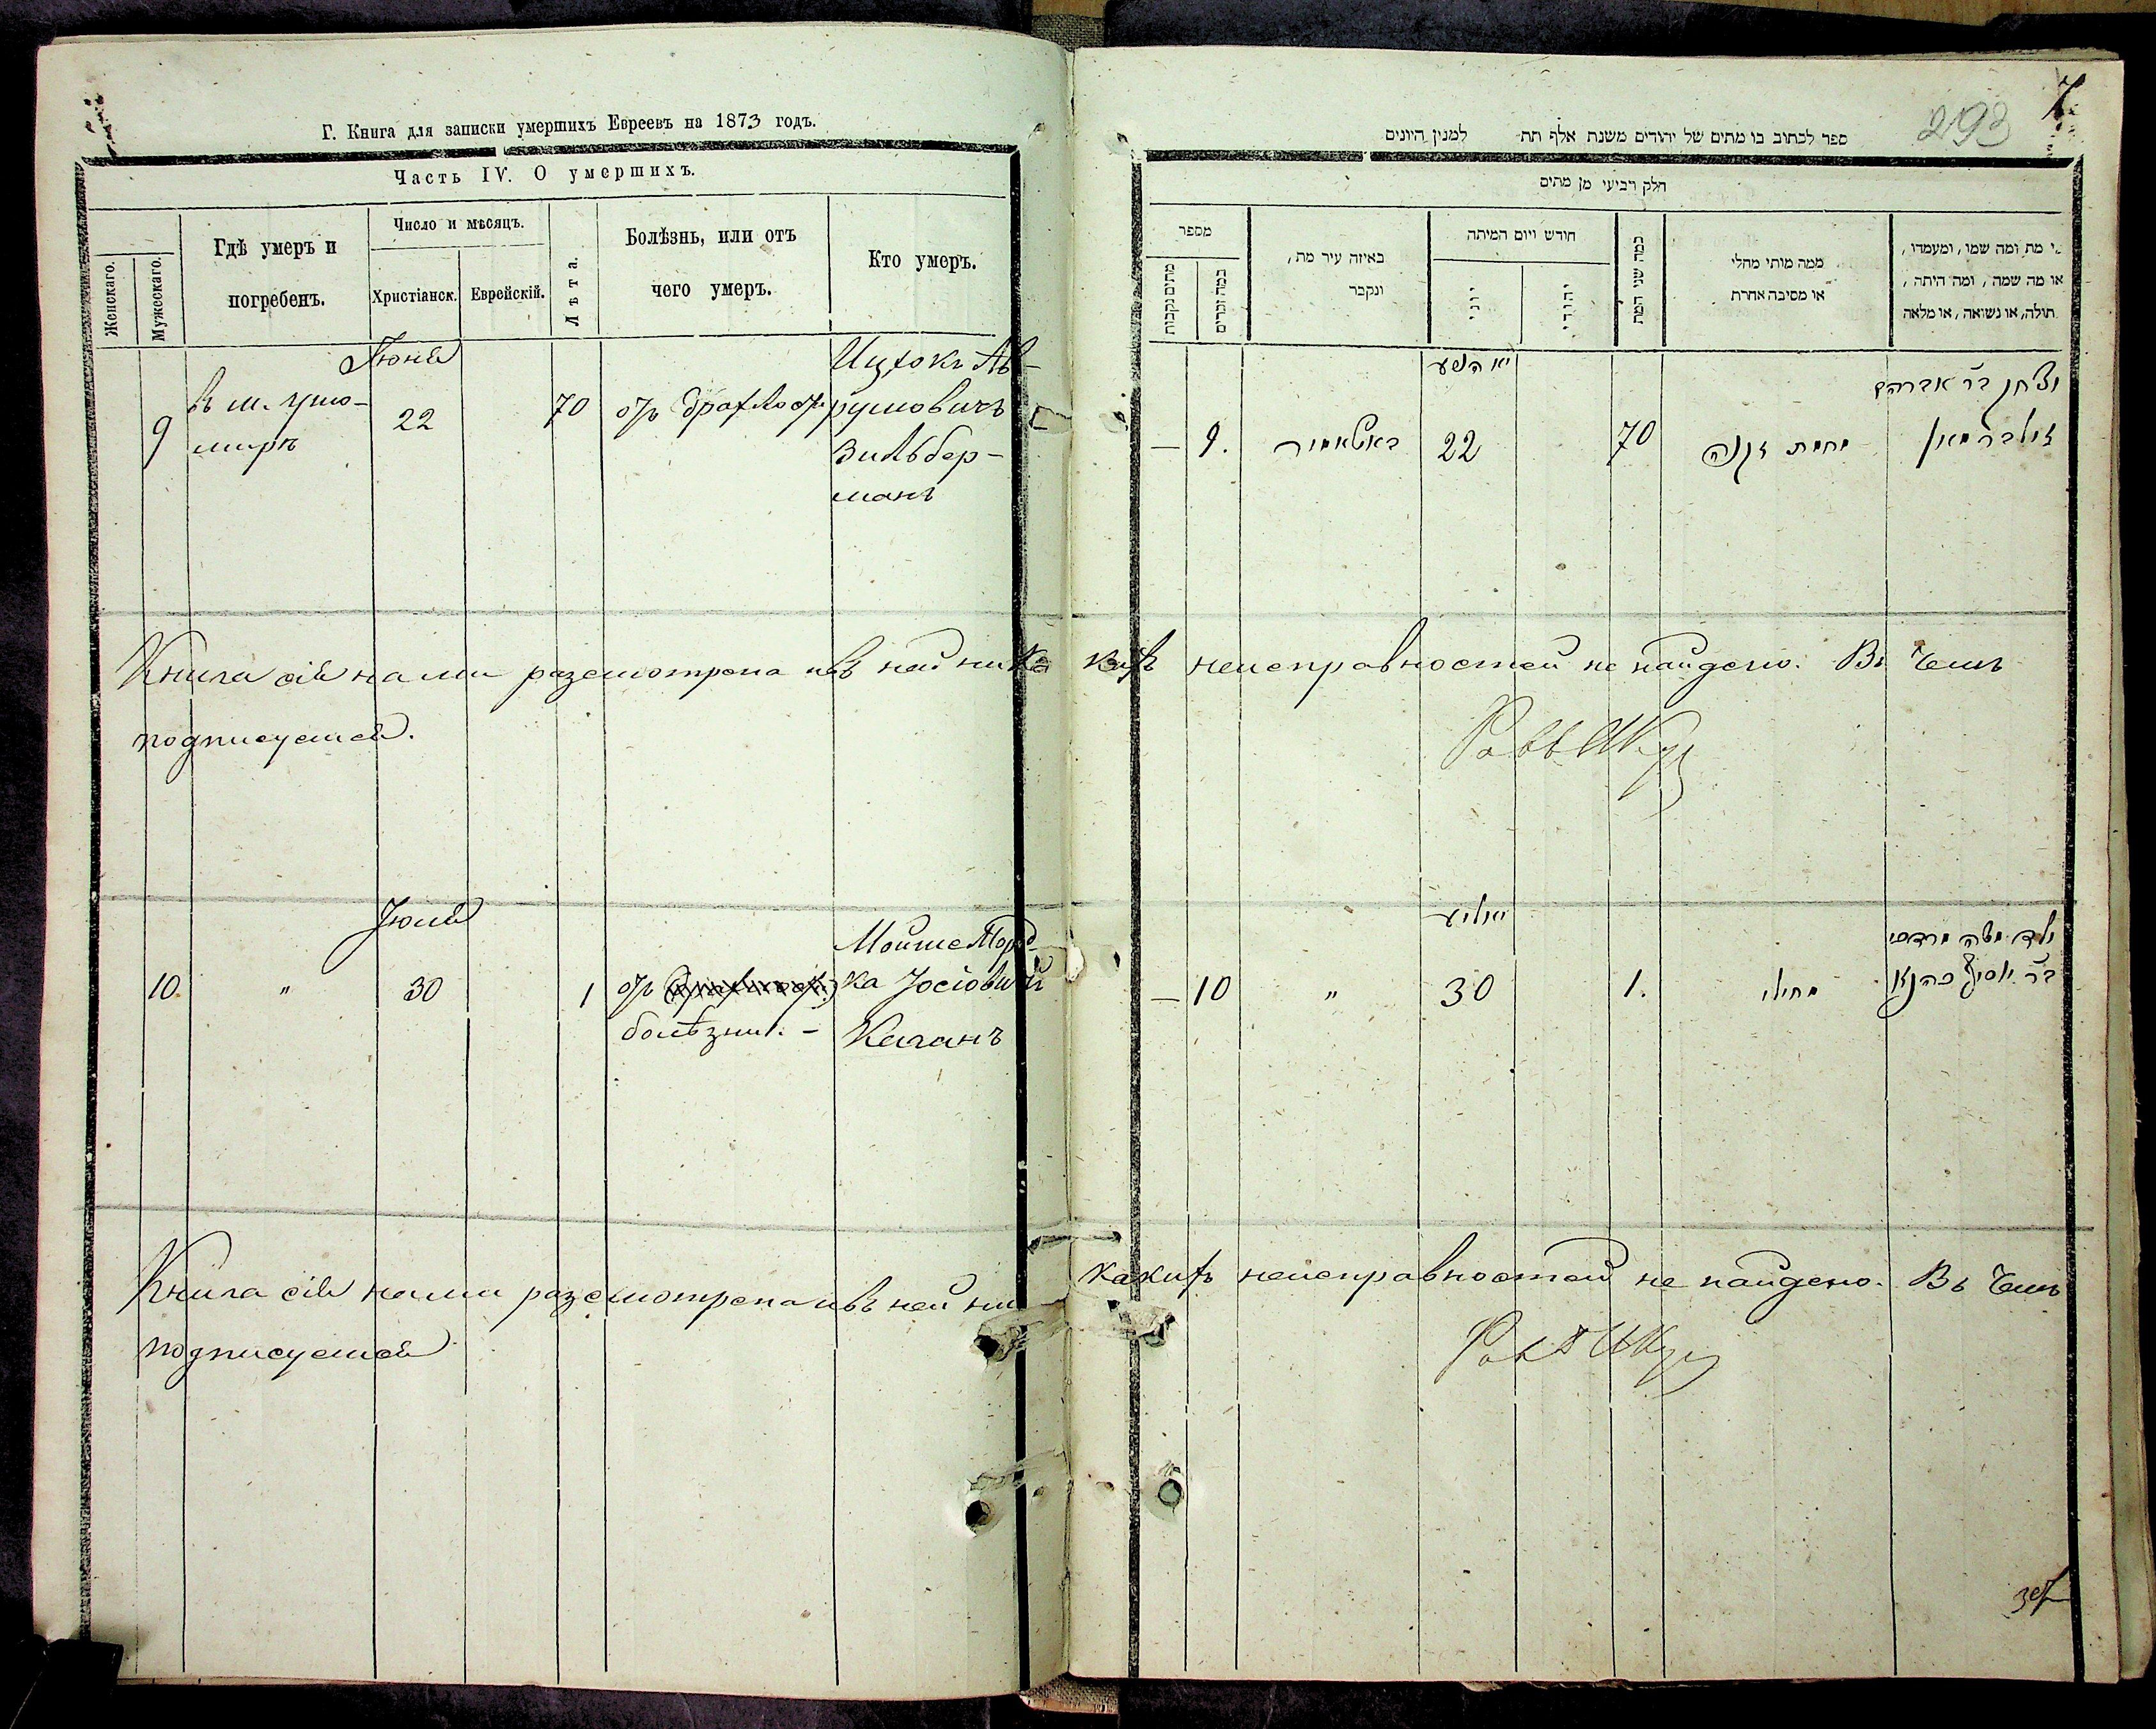 Г. Книга для записки умершихъ Евреевъ на 1873 годъ.
Часть IV. О умершихъ.
Женскаго.
Мужескаго.
Гдѣ умеръ и
погребенъ.
Число и мѣсяцъ.
Христіанск.
Еврейскій.
Лѣта.
Болѣзнь, или отъ
чего умеръ.
Кто умеръ.
Іюня
9
22
70
отъ
Ицхокъ Ав-
румовичъ
Зильбер-
манъ
Книга сія нами разсмотрена и въ ней ника
подписуемся.
Іюля
10
"
30
1
отъ
болѣзни. -
Мойше Морд-
ка Іосіович
Каганъ
Книга сія нами разсмотрена и въ ней ни
подписуемся
293
7
ספר לכתוב בו מתים של יהודים משנת אלף תת למנין היונים
חלק רביעי מן מתים
מספר
מתים נקבות
כמה זכרים
באיזה עיר מת,
ונקבר
חודש ויום המיתה
יוני
יהודי
כמה שני המת
ממה מותי מחלי
או מסיבה אחרת
י מת ומה שמו, ומעמדו,
או מה שמה, ומה היתה,
תולה, או נשואה, או מלאה
— 9.
22
70
מחמת זקנה
יצחק בר אברהם
זילברמאן
кихъ неисправностей не найдено. Въ чемъ
יוליע
— 10
"
30
1.
מחולי
ילד משה מרדכי
בר יוסף כהנא
какихъ неисправностей не найдено. Въ чемъ